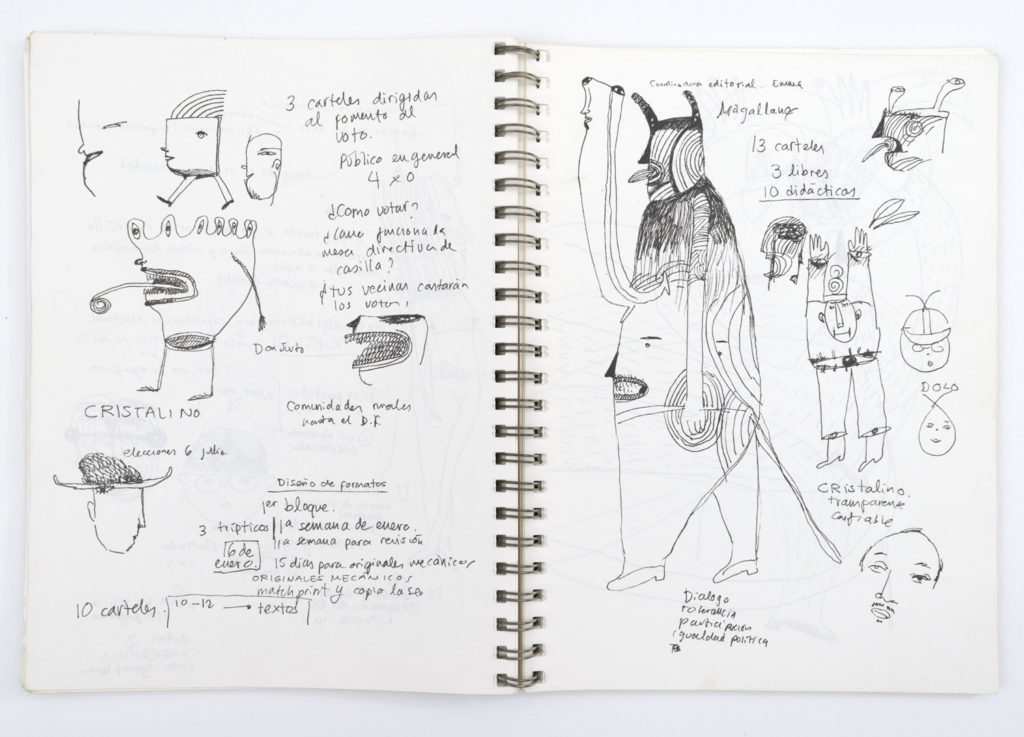 3 carteles dirigidas
al fomento del
voto.
Público en general
4 x 0
¿Como votar?
¿Como funciona la
mesa directiva de
casilla?
¡tus vecinos contarán
los votos!
CRISTALINO
Comunidades rurales
hasta el D.F.
elecciones 6 julio
Diseño de formatos
1er bloque.
3 trípticos 1ª semana de enero.
1ª semana para revisión
6 de
enero.
15 dias para originales mecánicos
ORIGINALES MECÁNICOS
matchprint y copia laser
10 carteles. 10-12 → textos
Coordinadora editorial. Emma
Magallanes
13 carteles
3 libres
10 didácticos
DOLO
CRistalino.
transparente
confiable
Dialogo
tolerancia
participacion
igualdad política